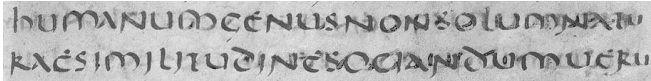 humanumgenusnonsolumnatu
raesimilitudinesociandumueru